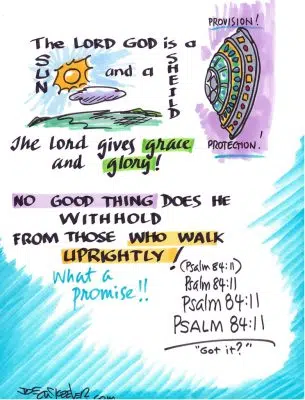 PROVISION!
The LORD GOD is a
SUN and a SHEILD
PROTECTION!
The Lord gives grace
and glory!
NO GOOD THING DOES HE
WITHHOLD
FROM THOSE WHO WALK
UPRIGHTLY!
(Psalm 84:11)
What a
promise!!
Psalm 84:11
Psalm 84:11
PSALM 84:11
"Got it?"
JOE McKeever.com